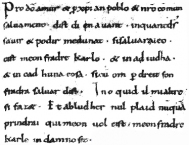 Pro dõ amur & pxpian poblo & nrõ comun
saluament. dist di in auant. inquantds
sauir & podir medunat. sisaluaraieo.
cist meon fradre karlo. & in aiudha
& in cad huna cosa. sicũ om p dreit son
fradra saluar dist. Ino quid il mi altre
si faz&. Et abludher nul plaid nũquã
prindrai qui meon uol cist. meon fradre
karle in damno sit.